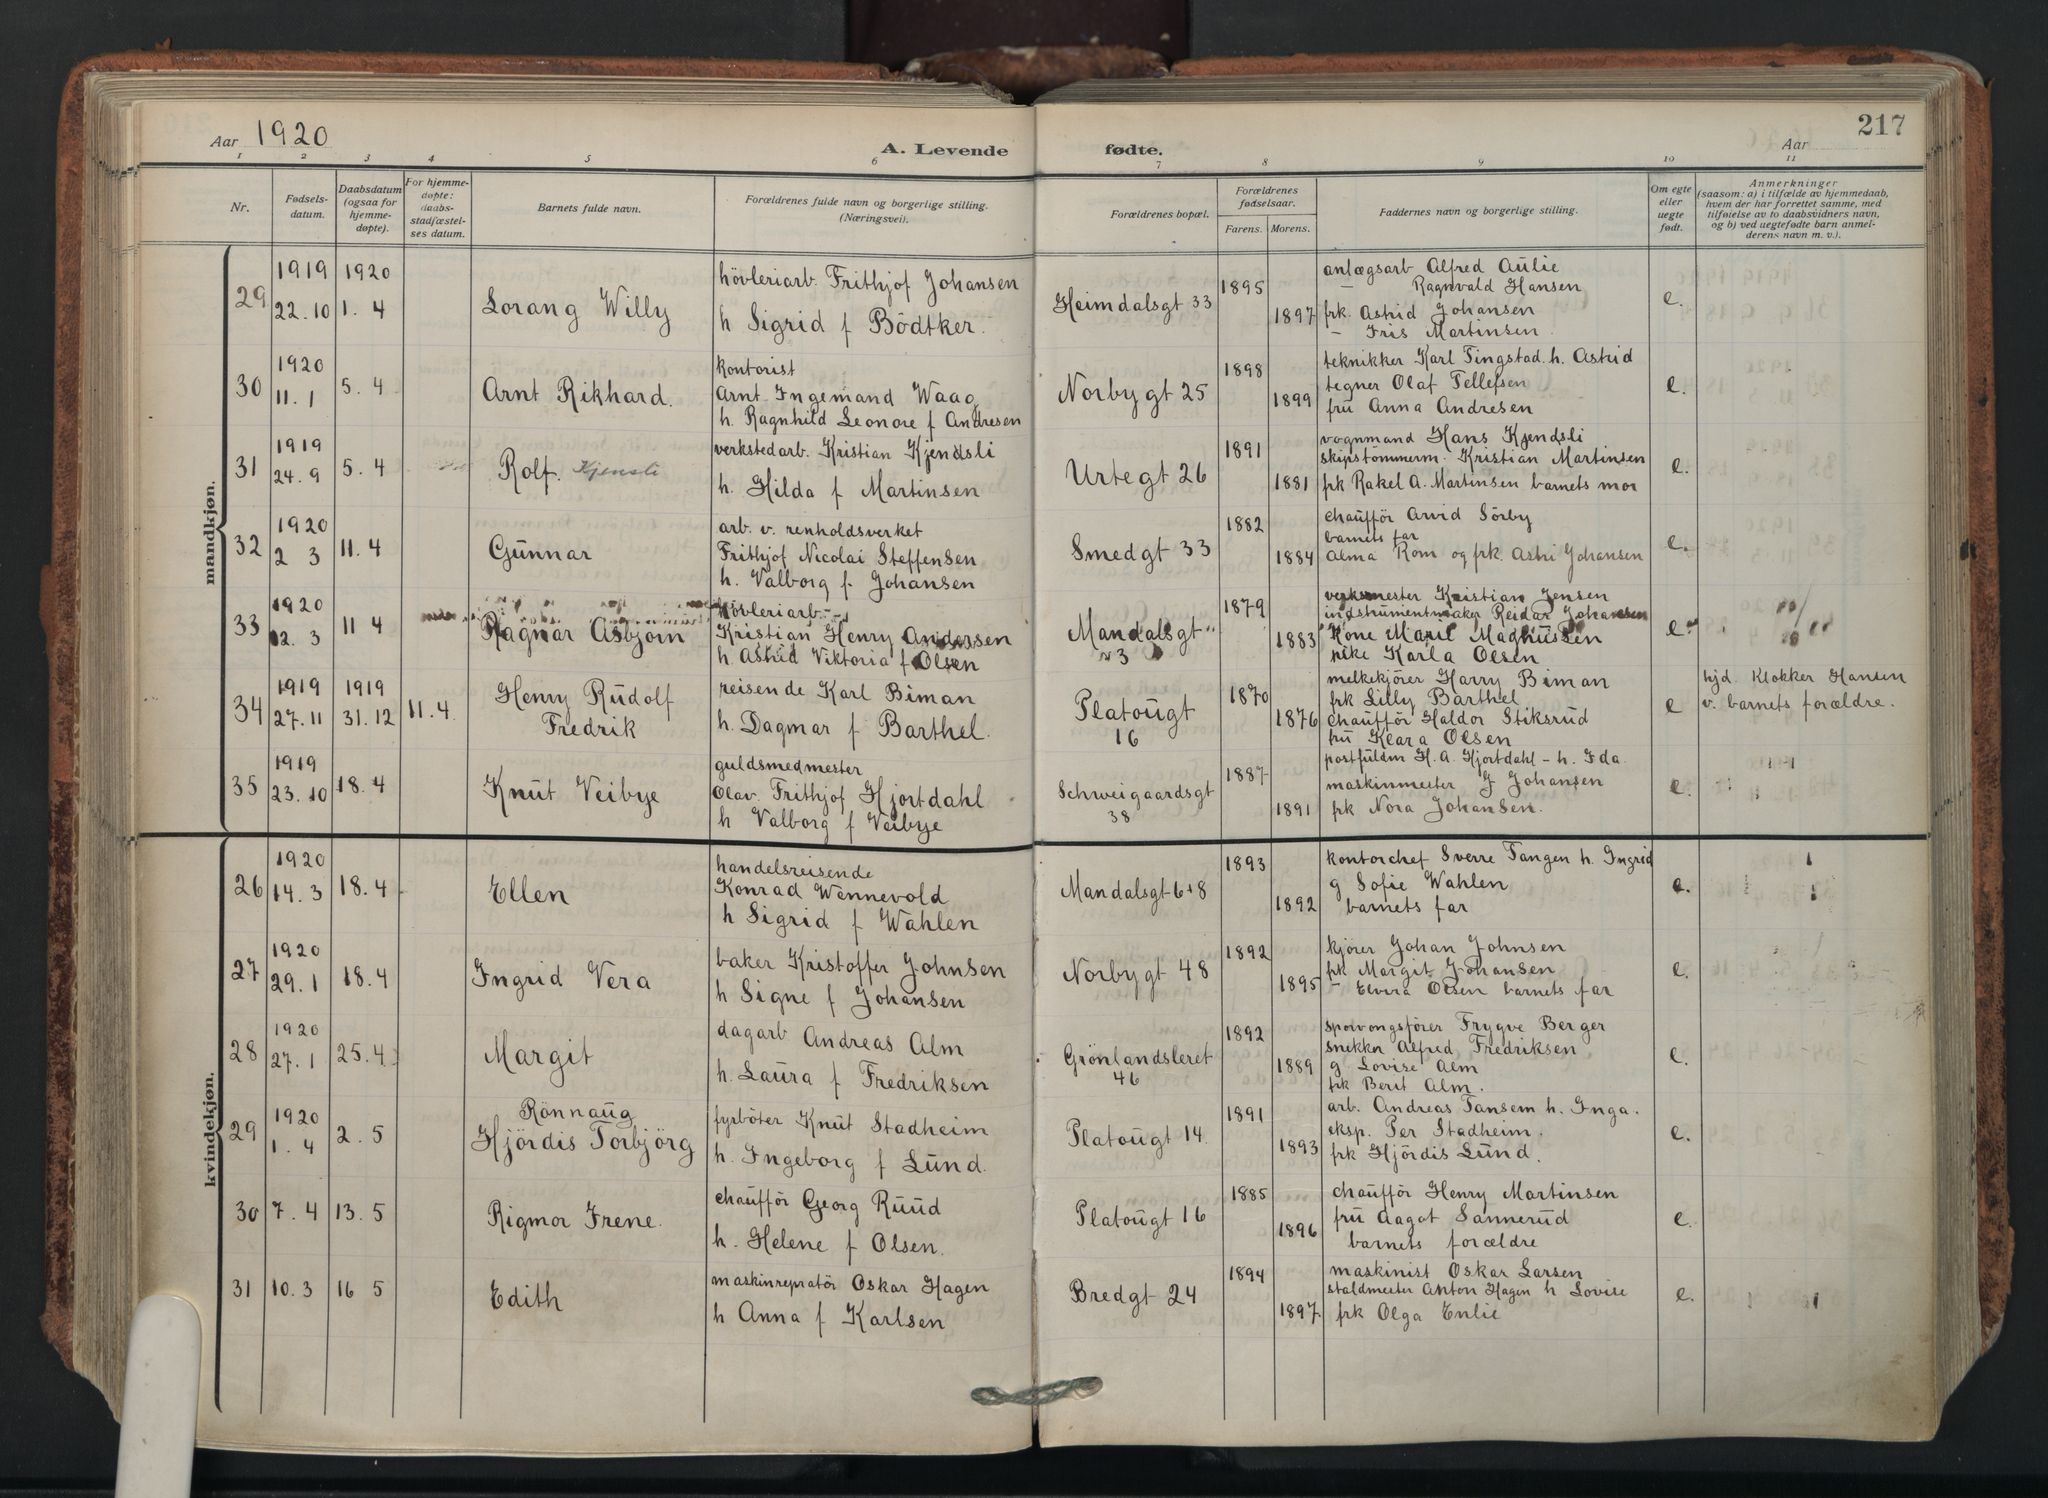 Aar 1920
A. Levende
fødte.
217
Aar
1 2 3 4 5 6 7 8 9 10 11
Nr.
Fødsels-
datum.
Daabsdatum
(ogsaa for
hjemme-
døpte).
For hjemme-
døpte:
daabs-
stadfæstel-
ses datum.
Barnets fulde navn.
Forældrenes fulde navn og borgerlige stilling.
(Næringsvei).
Forældrenes bopæl.
Forældrenes
fødselsaar.
Farens. Morens.
Faddernes navn og borgerlige stilling.
Om egte
eller
uegte
født.
Anmerkninger
(saasom: a) i tilfælde av hjemmedaab,
hvem der har forrettet samme, med
tilføielse av to daabsvidners navn,
og b) ved uegtefødte barn anmel-
derens navn m. v.).
mandkjøn.
29
1919
22.10
1920
1. 4
Lorang Willy
hövleriarb. Frithjof Johansen
h Sigrid f Bödtker.
Heimdalsgt 33
1895
1897
anlægsarb Alfred Aulie
— Ragnvald Hansen
frk. Astrid Johansen
– Iris Martinsen
e.
30
1920
11. 1
5. 4
Arnt Rikhard.
kontorist
Arnt Ingemand Waag
h. Ragnhild Leonore f Andresen
Norbygt 25
1898
1899
teknikker Karl Tingstad. h. Astrid
tegner Olaf Tellefsen
frü Anna Andresen
e.
31
1919
24. 9
5. 4
Rolf. Kjensli
verkstedarb. Kristian Kjendsli
h. Hilda f Martinsen
Urtegt 26
1891
1881
vognmand Hans Kjendsli
skipstömmerm. Kristian Martinsen
frk Rakel A. Martinsen barnets mor
e.
32
1920
2 3
11. 4
Günnar
arb. v. renholdsverket
Frithjof Nicolai Steffensen
h. Valborg f Johansen
Smedgt 33
1882
1884
chaufför Arvid Sörby
barnets far
Alma Rom og frk. Astri Johansen
e.
33
1920
12. 3
11 4
Ragnar Asbjörn
hövleriarb.
Kristian Henry Andersen
h. Astrid Viktoria f Olsen
Mandalsgt
1879
1883
verksmester Kristian Jensen
instrumentmaker Reidar Johansen
Kone Marie Magnussen
pike Karla Olsen
e
34
1919
27. 11
1919
31. 12
11. 4.
Henry Rüdolf
Fredrik
reisende Karl Biman
h. Dagmar f Barthel.
Platoügt
16
1870
1876
melkekjører Harry Biman
frk Lilly Barthel
chaufför Haldor Stiksrüd
frü Klara Olsen
e
hjd. Klokker Hansen
v. barnets forældre.
35
1919
23. 10
18. 4
Knüt Veibye
guldsmedmester
Olav Frithjof Hjortdahl
h Valborg f Veibye
Schweigaardsgt
38
1887
1891
postfuldm H. A. Hjortdahl – h. Ida.
maskinmester G Johansen
frk Nora Johansen.
e.
kvindekjøn.
26
1920
14. 3
18. 4
Ellen
handelsreisende
Konrad Wennevold
h Sigrid f Wahlen
Mandalsgt 6+8
1893
1892
kontorchef Sverre Tangen h. Ingrid
g Sofie Wahlen
barnets far
e.
27
1920
29. 1
18. 4
Ingrid Vera
baker Kristoffer Johnsen
h Signe f Johansen
Norbygt 48
1892
1895
kjører Johan Johnsen
frk Margit Johansen
– Elvira Olsen barnets far
e.
28
1920
27. 1
25. 4
Margit
dagarb Andreas Alm
h. Laura f Fredriksen
Grönlandsleret
46
1892
1889
sporvongsfører Trygve Berger
snekker Alfred Fredriksen
g Lovise Alm
frk Berit Alm.
e.
29
1920
1. 4
2. 5
Rönnaüg
Hjördis Torbjörg
fyrböter Knüt Stadheim
h. Ingeborg f Lünd.
Platoügt 14.
1891
1893
arb. Andreas Tansem h. Inga.
eksp. Per Stadheim.
frk Hjördis Lünd.
e.
30
7. 4
13. 5
Rigmor Irene.
chaufför Georg Ruüd
h. Helene f Olsen.
Platoügt 16
1885
1896
chaufför Henry Martinsen
frü Aagot Sannerüd
barnets forældre
e.
31
10. 3
16 5
Edith
maskinrepratör Oskar Hagen
h Anna f Karlsen
Bredgt 24
1894
1897
maskinist Oskar Larsen
staldmester Anton Hagen h Lovise
frk Olga Enlie
e.